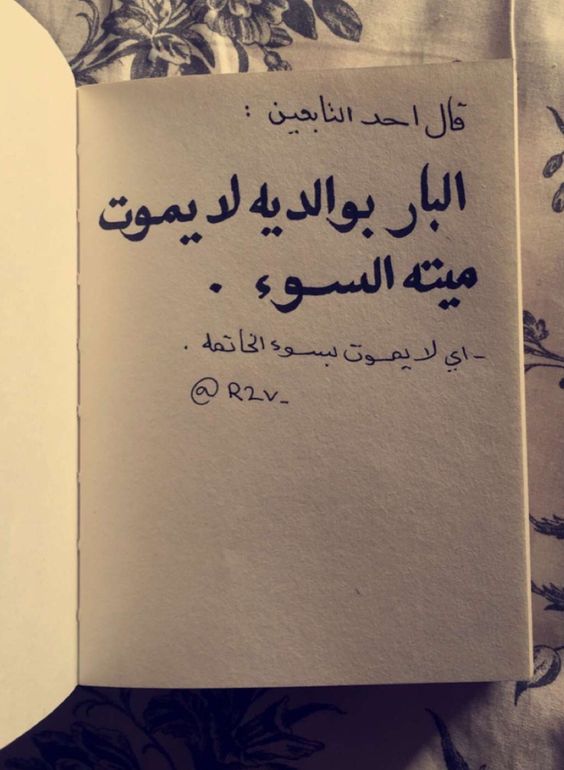 قال احد التابعين :
البار بوالديه لا يموت
ميته السوء .
- اي لا يموت بسوء الخاتمه .
@R2v_